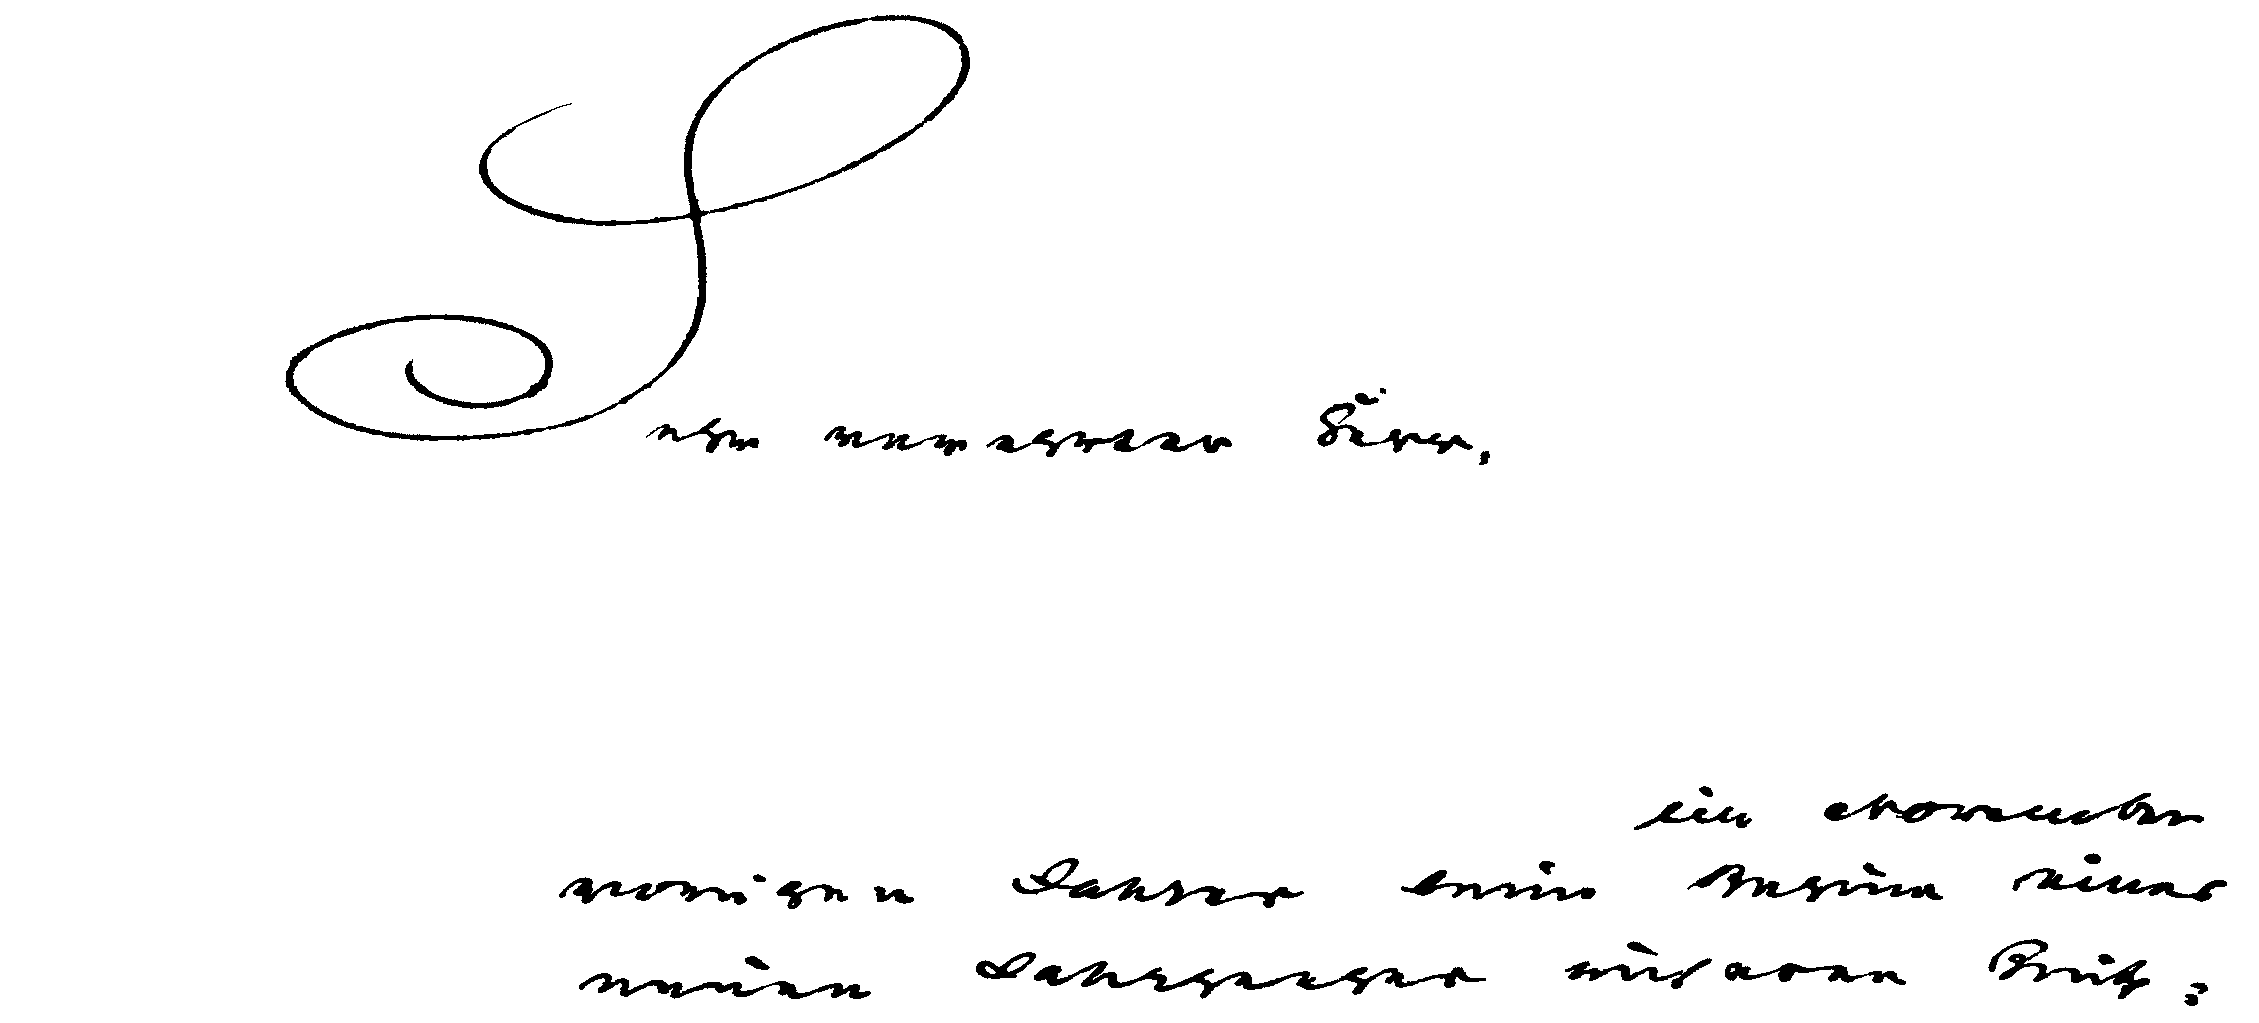 Sehr verehrter Herr,
im November
vorigen Jahres beim Beginn eines
neuen Jahrganges unserer Buch-